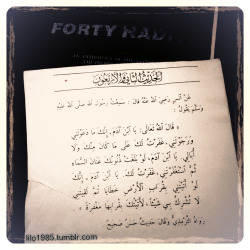 FORTY HADI
الحديث الثاني والأربعون
عَنْ أَنَسٍ رَضِيَ اللهُ عَنْهُ قَالَ : سَمِعْتُ رَسُولَ اللهِ صَلَّى اللهُ عَلَيْهِ
وَسَلَّمَ يَقُولُ :
« قَالَ اللهُ تَعَالَى : يَا ابْنَ آدَمَ ، إِنَّكَ مَا دَعَوْتَنِي
وَرَجَوْتَنِي ، غَفَرْتُ لَكَ عَلَى مَا كَانَ مِنْكَ وَلَا
أُبَالِي . يَا ابْنَ آدَمَ ، لَوْ بَلَغَتْ ذُنُوبُكَ عَنَانَ السَّمَاءِ
ثُمَّ اسْتَغْفَرْتَنِي ، غَفَرْتُ لَكَ . يَا ابْنَ آدَمَ ، إِنَّكَ
لَوْ أَتَيْتَنِي بِقُرَابِ الْأَرْضِ خَطَايَا ثُمَّ لَقِيتَنِي
لَا تُشْرِكُ بِي شَيْئًا ، لَأَتَيْتُكَ بِقُرَابِهَا مَغْفِرَةً » .
رَوَاهُ التِّرْمِذِيُّ وَقَالَ حَدِيثٌ حَسَنٌ صَحِيحٌ
lilo1985.tumblr.com